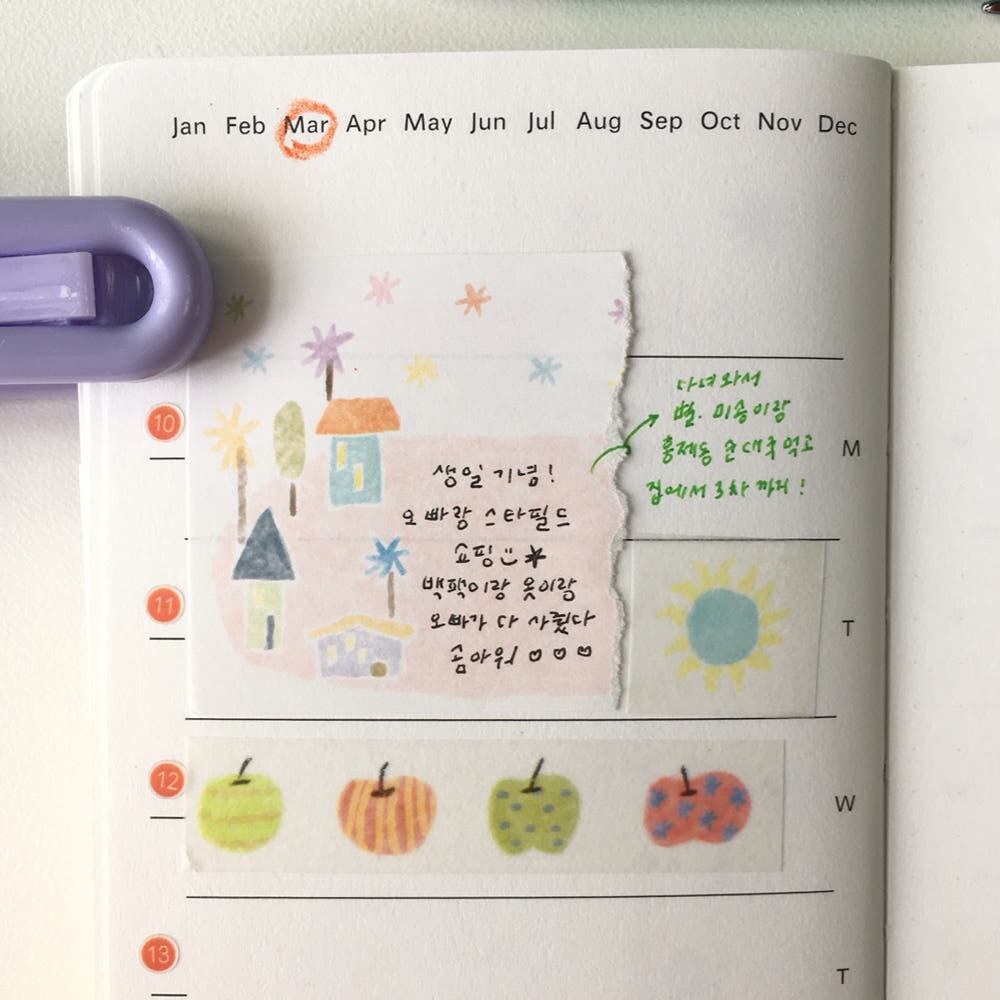 Jan Feb Mar Apr May Jun Jul Aug Sep Oct Nov Dec
10
생일기념!
오빠랑 스타필드
쇼핑
백팩이랑 옷이랑
오빠가 다 사줬다
곰아워 ♡♡♡
다녀와서
별. 미송이랑
홍제동 순대국 먹고
집에서 3차 까지!
M
11
T
12
W
13
T